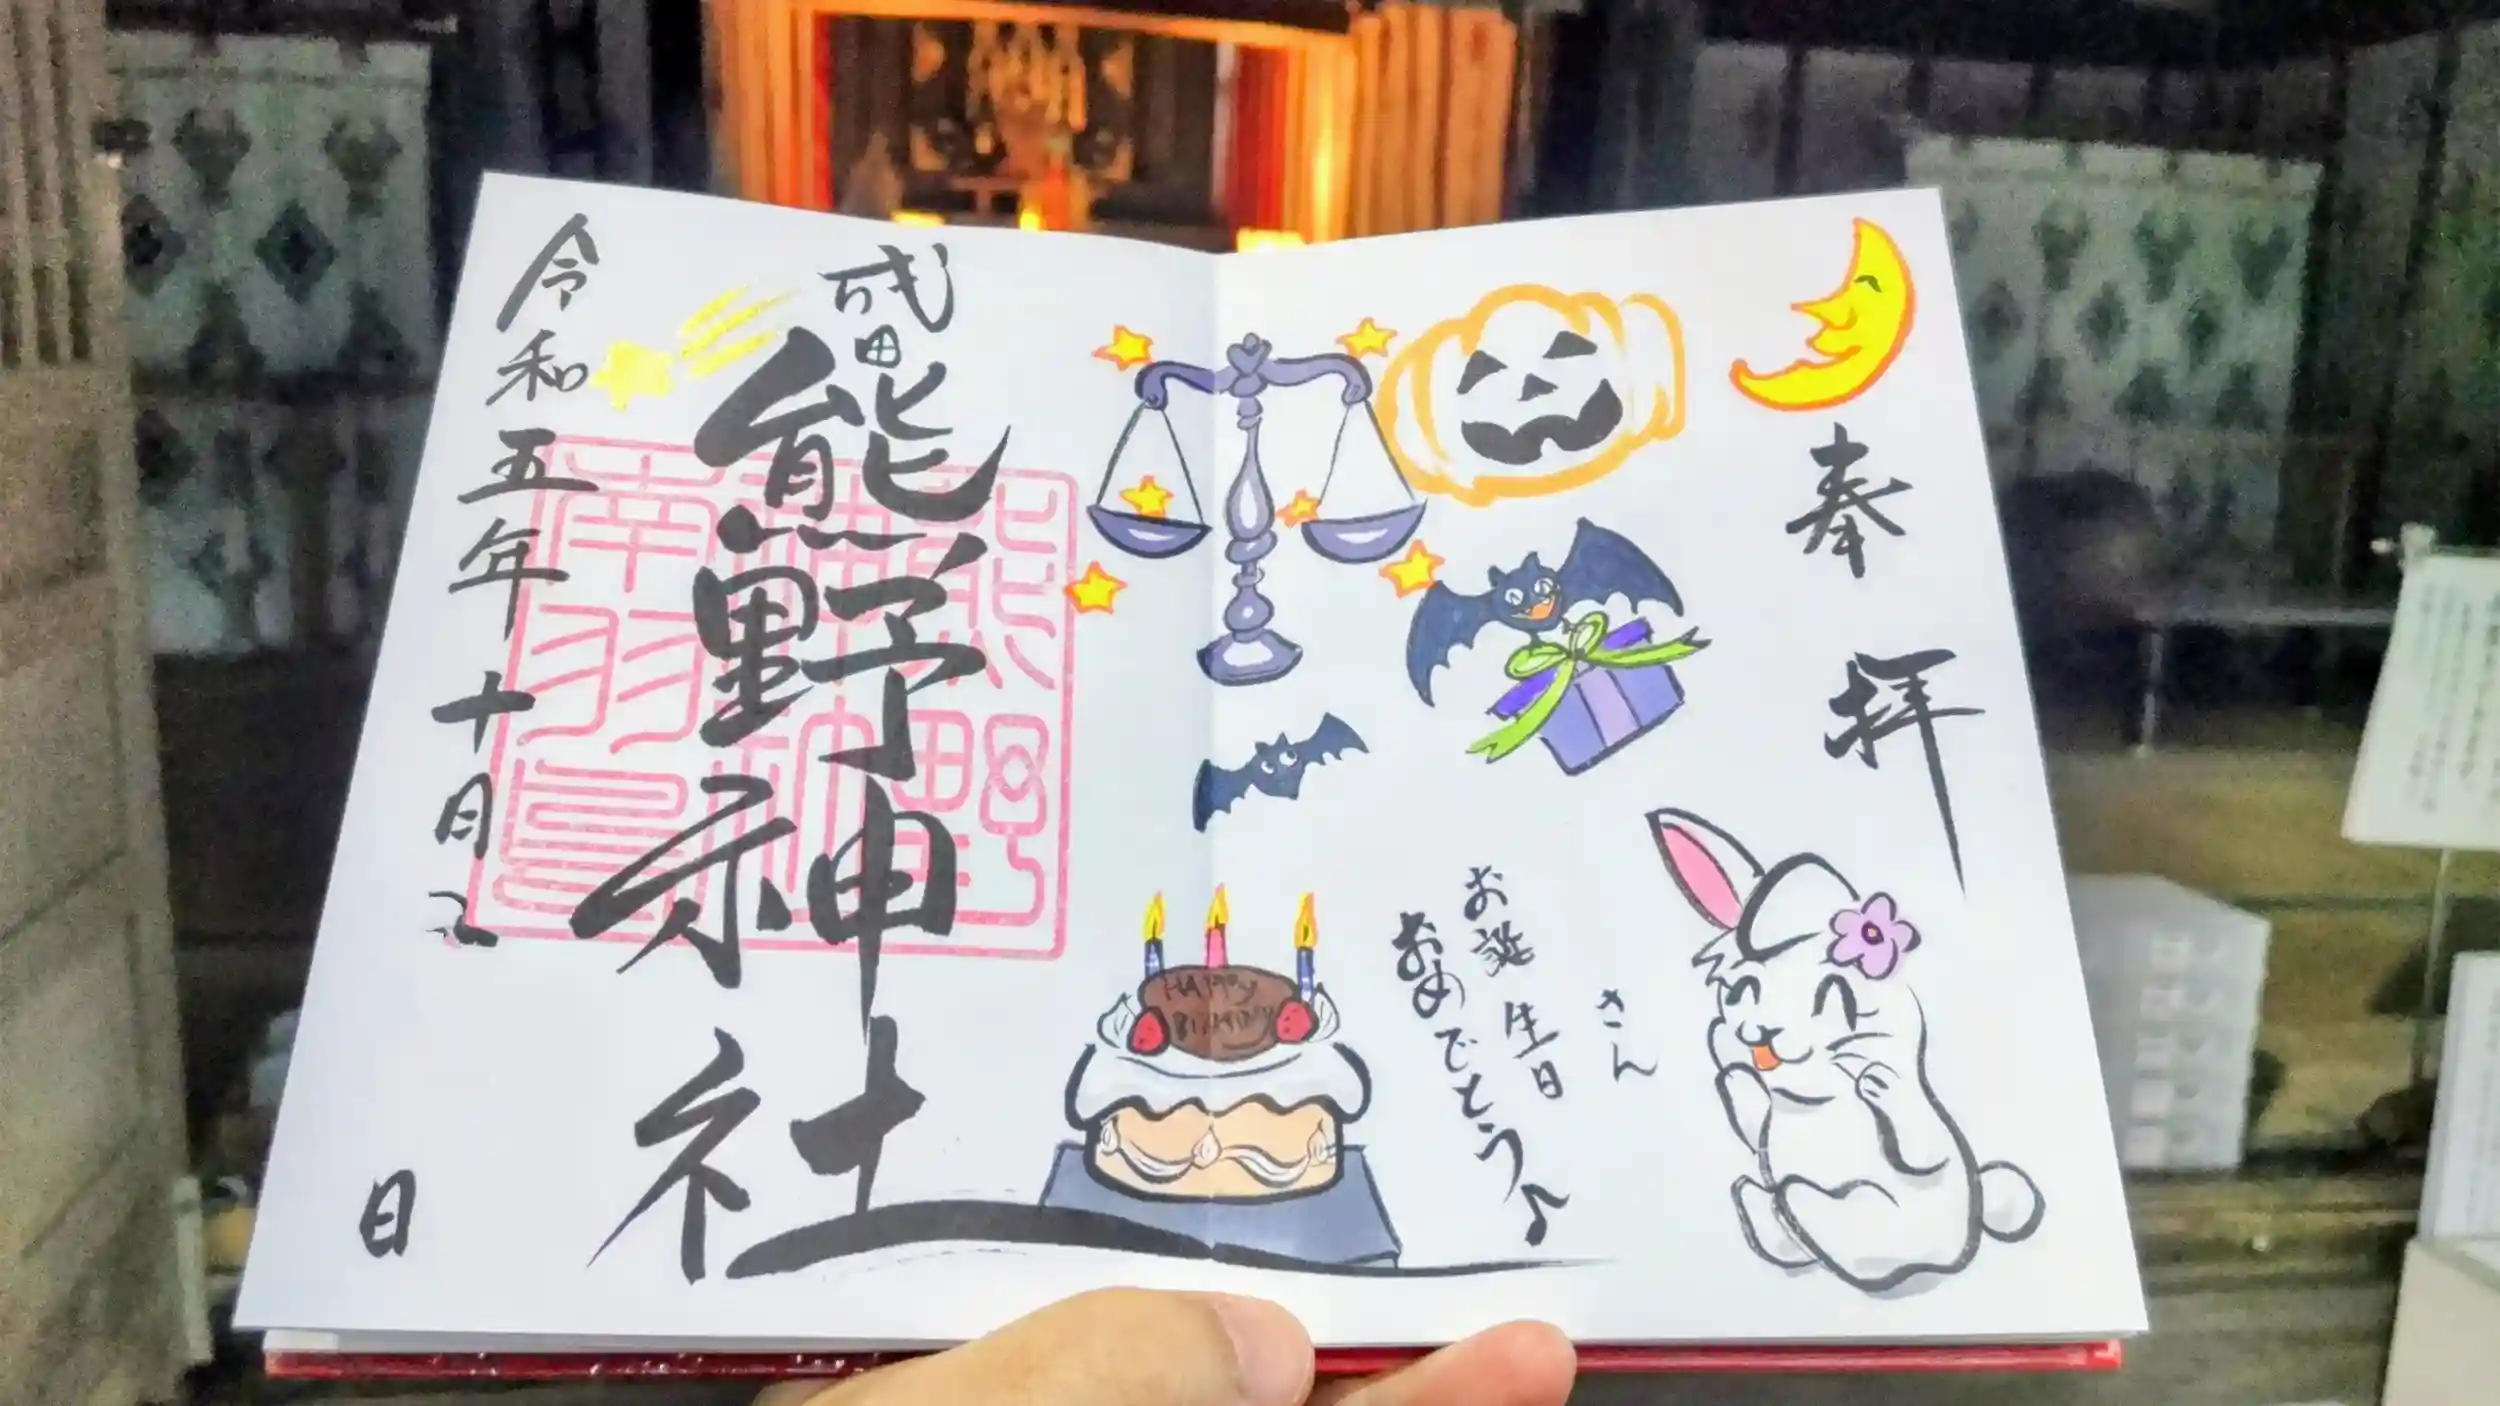 奉拝
さん
お誕生日
おめでとう♪
HAPPY
BIRTHDAY
成田
熊野神社
令和五年十月
日